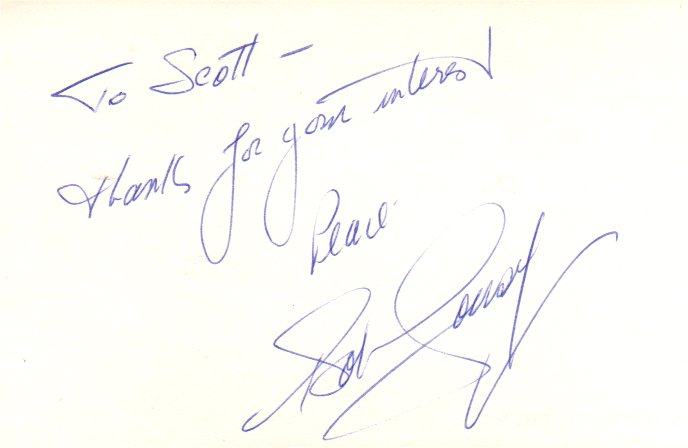 To Scott —
thanks for your interest
Peace.
Bob